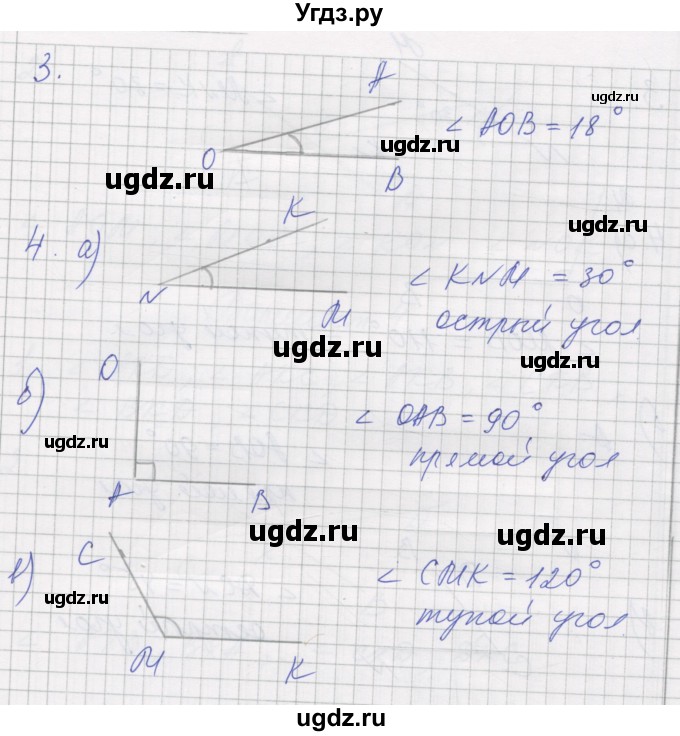 Угдз.ру
ugdz.ru
3.
A
∠ AOB = 18°
ugdz.ru
O
B
ugdz.ru
K
ugdz.ru
4. а)
∠ KNM = 30°
N
M
острый угол
ugdz.ru
O
ugdz.ru
б)
∠ OAB = 90°
ugdz.ru
прямой угол
A
B
ugdz.ru
ugdz.ru
C
в)
∠ CMK = 120°
ugdz.ru
тупой угол
ugdz.ru
M
K
ugdz.ru